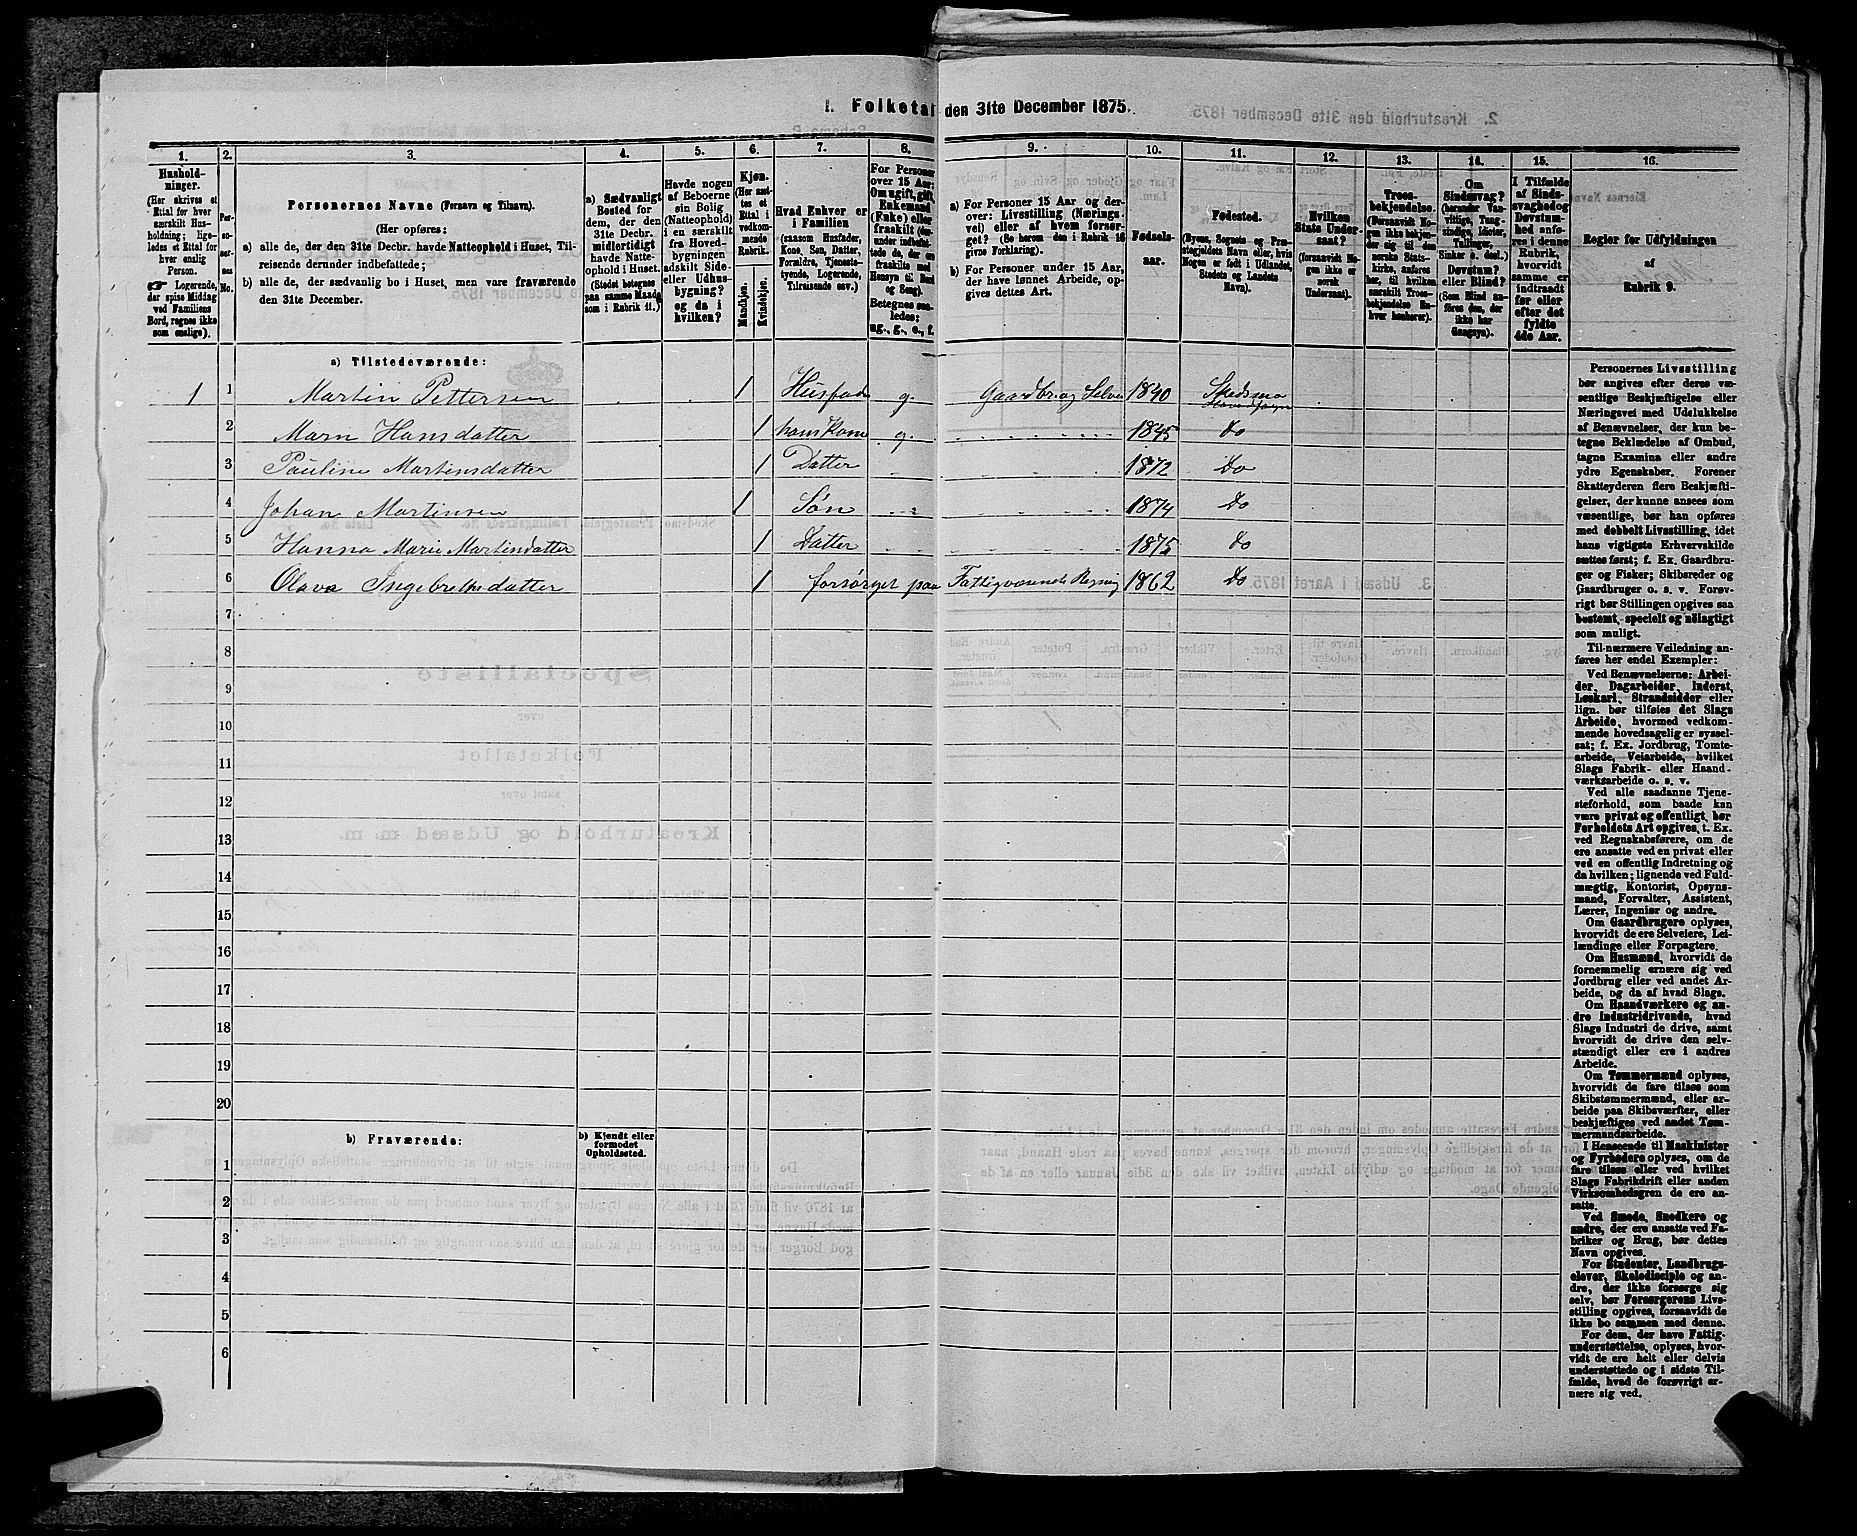 I. Folketal den 31te December 1875.
1.
Hushold-
ninger.
(Her skrives et
Ettal for hver
særskilt Hus-
holdning; lige-
ledes et Ettal for
hver enslig
Person.
Logerende,
der spise Middag
ved Familiens
Bord, regnes ikke
som enslige).
2.
Per-
so-
ner-
nes
No.
3.
Personernes Navne (Fornavn og Tilnavn).
(Her opføres:
a) alle de, der den 31te Decbr. havde Natteophold i Huset, Til-
reisende derunder indbefattede;
b) alle de, der sædvanlig bo i Huset, men vare fraværende
den 31te December.
4.
a) Sædvanligt
Bosted for
dem, der den
31te Decbr.
midlertidigt
havde Natte-
ophold i Huset.
(Stedet betegnes
paa samme Maade
som i Rubrik 11.)
5.
Havde nogen
af Beboerne
sin Bolig
(Natteophold)
i en særskilt
fra Hoved-
bygningen
adskilt Side-
eller Udhus-
bygning?
og da i
hvilken?
6.
Kjøn.
(Her sæt-
tes et
Ettal i
vedkom-
mende
Rubrik.
Mandkjøn.
Kvindekjøn.
7.
Hvad Enhver er
i Familien
(saasom Husfader,
Kone, Søn, Datter,
Forældre, Tjeneste-
tyende, Logerende,
Tilreisende osv.)
8.
For Personer
over 15 Aar:
Om ugift, gift,
Enkemand
(Enke) eller
fraskilt (der-
under indbefat-
tede de, der ere
fraskilte med
Hensyn til Bord
og Seng).
Betegnes saa-
ledes:
ug., g., e., f.
9.
a) For Personer 15 Aar og der-
over: Livsstilling (Nærings-
vei) eller af hvem forsør-
get? (Se herom den i Rubrik 16
givne Forklaring).
b) For Personer under 15 Aar,
der have lønnet Arbeide, op-
gives dettes Art.
10.
Fødsels-
aar.
11.
Fødested.
(Byens, Sognets og Præ-
stegjeldets Navn eller, hvis
Nogen er født i Udlandet,
Stedets og Landets
Navn).
12.
Hvilken
Stats Under-
saat?
(forsaavidt No-
gen ikke er
norsk
Undersaat).
13.
Troes-
bekjendelse.
(Forsaavidt No-
gen ikke bekjen-
der sig til den
norske Stats-
kirke, anføres
her, til hvilken
særskilt Troes-
bekjendelse En-
hver henhører).
14.
Om
Sindssvag?
(herunder Van-
vittige, Tung-
sindige, Idioter,
Tullinger,
Sinker o. desl.)
Døvstum?
eller Blind?
(Som Blind an-
føres den, der
ikke har
Gangsyn).
15.
I Tilfælde
af Sinds-
svaghed og
Døvstum-
hed anfø-
res i denne
Rubrik,
hvorvidt
samme er
indtraadt
før eller
efter det
fyldte
4de Aar.
16.
Regler for Udfyldningen
af
Rubrik 9.
a) Tilstedeværende:
1 1 Martin Pettersen 1 Husfad g. Gaardbr. og Selv 1840 Skedsmo
2 Marn Hansdatter 1 hans Kone g. 1845 do
3 Pauline Martinsdatter 1 Datter 1872 do
4 Johan Martinsen 1 Søn 1874 do
5 Hanna Marie Martinsdatter 1 Datter 1875 do
6 Olava Ingebrethsdatter 1 forsørget paa Fattigvæsenets Regning 1862 do
7
8
9
10
11
12
13
14
15
16
17
18
19
20
b) Fraværende:
b) Kjendt eller
formodet
Opholdssted.
1
2
3
4
5
6
Personernes Livsstilling
bør angives efter deres væ-
sentlige Beskjæftigelse eller
Næringsvei med Udelukkelse
af Benævnelser, der kun be-
tegne Beklædelse af Ombud,
tagne Examina eller andre
ydre Egenskaber. Forener
Skatteyderen flere Beskjæfti-
gelser, der kunne ansees som
væsentlige, bør han opføres
med dobbelt Livsstilling, idet
hans vigtigste Erhvervskilde
sættes først; f. Ex. Gaardbru-
ger og Fisker; Skibsreder og
Gaardbruger o. s. v. Forøv-
rigt bør Stillingen opgives saa
bestemt, specielt og nöiagtigt
som muligt.
Til nærmere Veiledning an-
føres her endel Exempler:
Ved Benævnelserne: Arbei-
der, Dagarbeider, Inderst,
Løskarl, Strandsidder eller
lign. bør tilføies det Slags
Arbeide, hvormed vedkom-
mende hovedsagelig er syssel-
sat; f. Ex. Jordbrug, Tomte-
arbeide, Veiarbeide, hvilket
Slags Fabrik- eller Haand-
værksarbeide o. s. v.
Ved alle saadanne Tjene-
steforhold, som baade kan
være privat og offentligt, bør
Forholdets Art opgives, t. Ex.
ved Regnskabsførere, om de
ere ansatte ved en privat eller
ved en offentlig Indretning og
da hvilken; lignende ved Fuld-
mægtig, Kontorist, Opsyns-
mand, Forvalter, Assistent,
Lærer, Ingeniør og andre.
Om Gaardbrugere oplyses,
hvorvidt de ere Selveiere, Lei-
lændinge eller Forpagtere.
Om Husmænd, hvorvidt de
fornemmelig ernære sig ved
Jordbrug eller ved andet Ar-
beide, og da af hvad Slags.
Om Haandværkere og an-
dre Industridrivende, hvad
Slags Industri de drive, samt
hvorvidt de drive den selv-
stændigt eller ere i andres
Arbeide.
Om Tømmermænd oplyses,
hvorvidt de fare tilsøs som
Skibstømmermænd, eller ar-
beide paa Skibsværfter, eller
beskjæftiges ved andet Tøm-
mermandsarbeide.
I Henseende til Maskinister
og Fyrbødere oplyses, om de
fare tilsøs eller ved hvilket
Slags Fabrikdrift eller anden
Virksomhedsgren de ere an-
satte.
Ved Smede, Snedkere og
andre, der ere ansatte ved Fa-
briker og Brug, bør dettes
Navn opgives.
For Studenter, Landbrugs-
elever, Skoledisciple og an-
dre, der ikke forsørge sig
selv, bør Forsørgerens Livs-
stilling opgives, forsaavidt de
ikke bo sammen med denne.
For dem, der have Fattig-
understøttelse, oplyses, hvor-
vidt de ere helt eller delvis
understøttede og i sidste Til-
fælde, hvad de forøvrigt er-
nære sig ved.